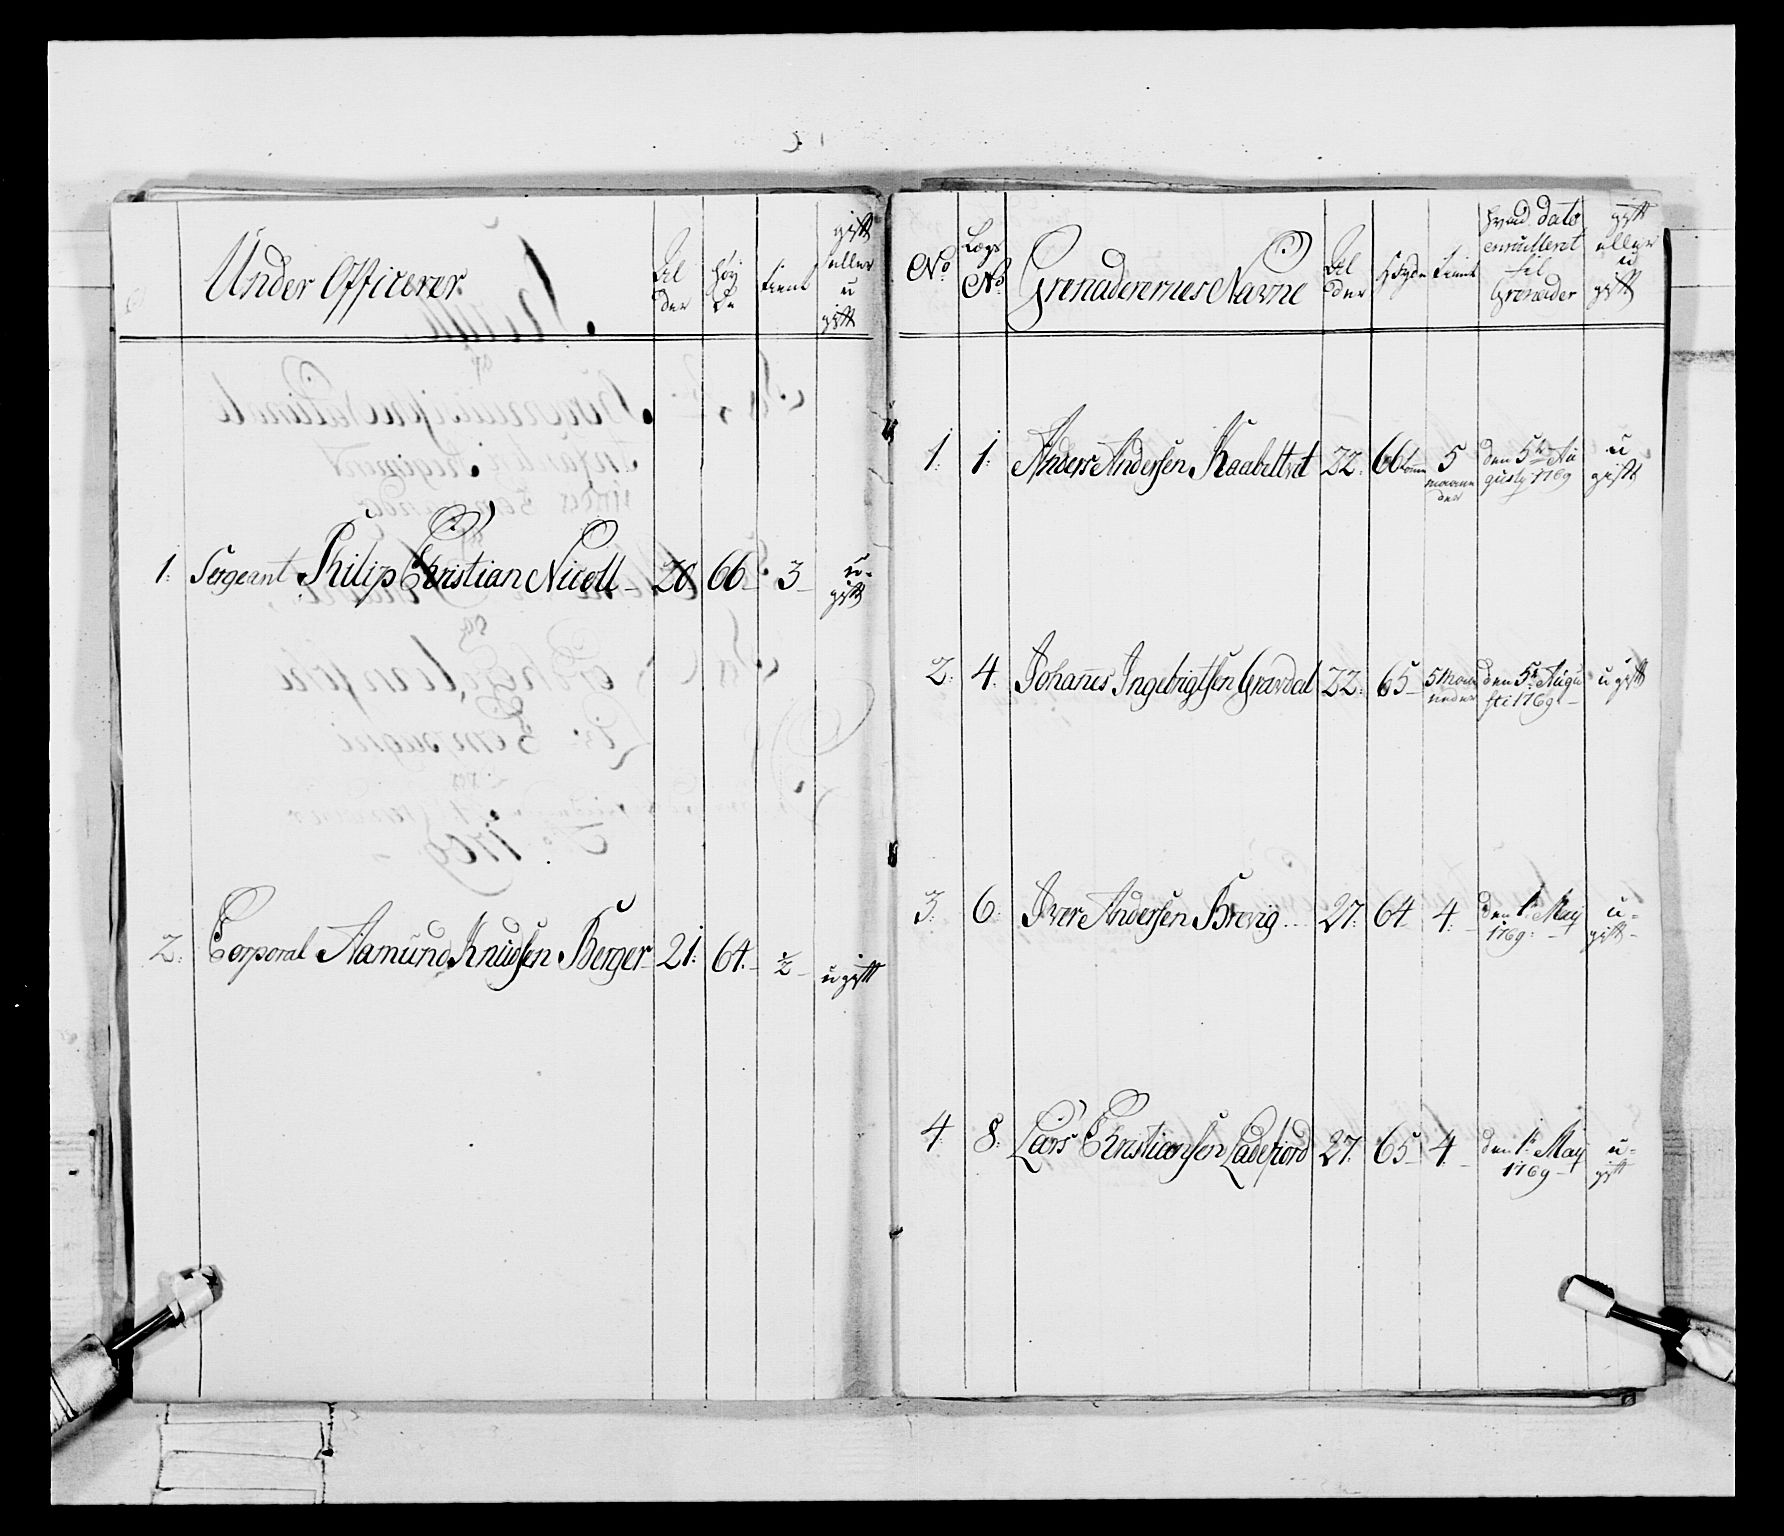 Under Officerer
Al der
Høy de
tient
gift eller u gift
1. Sergeant Philip Christian Nicoll 28 66 3 u-gift
2. Corporal Aamund Knudsen Berger 21 64 ½ ugift
No
Lægs No
Grenaderernes Navne
Al der
Høyde
tient
hvad dato enroullerit til Grenader
gift eller u gift
1. 1. Anders Andersen 22 66 5 maane der den 5te Au gusty 1769 u gift
2. 4. Johanes Ingebrigtsen Gravdal 22 65 5 Maa neder den 5t Augu sti 1769 ugift
3. 6. Iver Andersen Brevig 27 64 4 den 1t May 1769 u-gift
4 8. Lars Christiansen Ladefiord 27 65 4 den 1t May 1769 u-gift